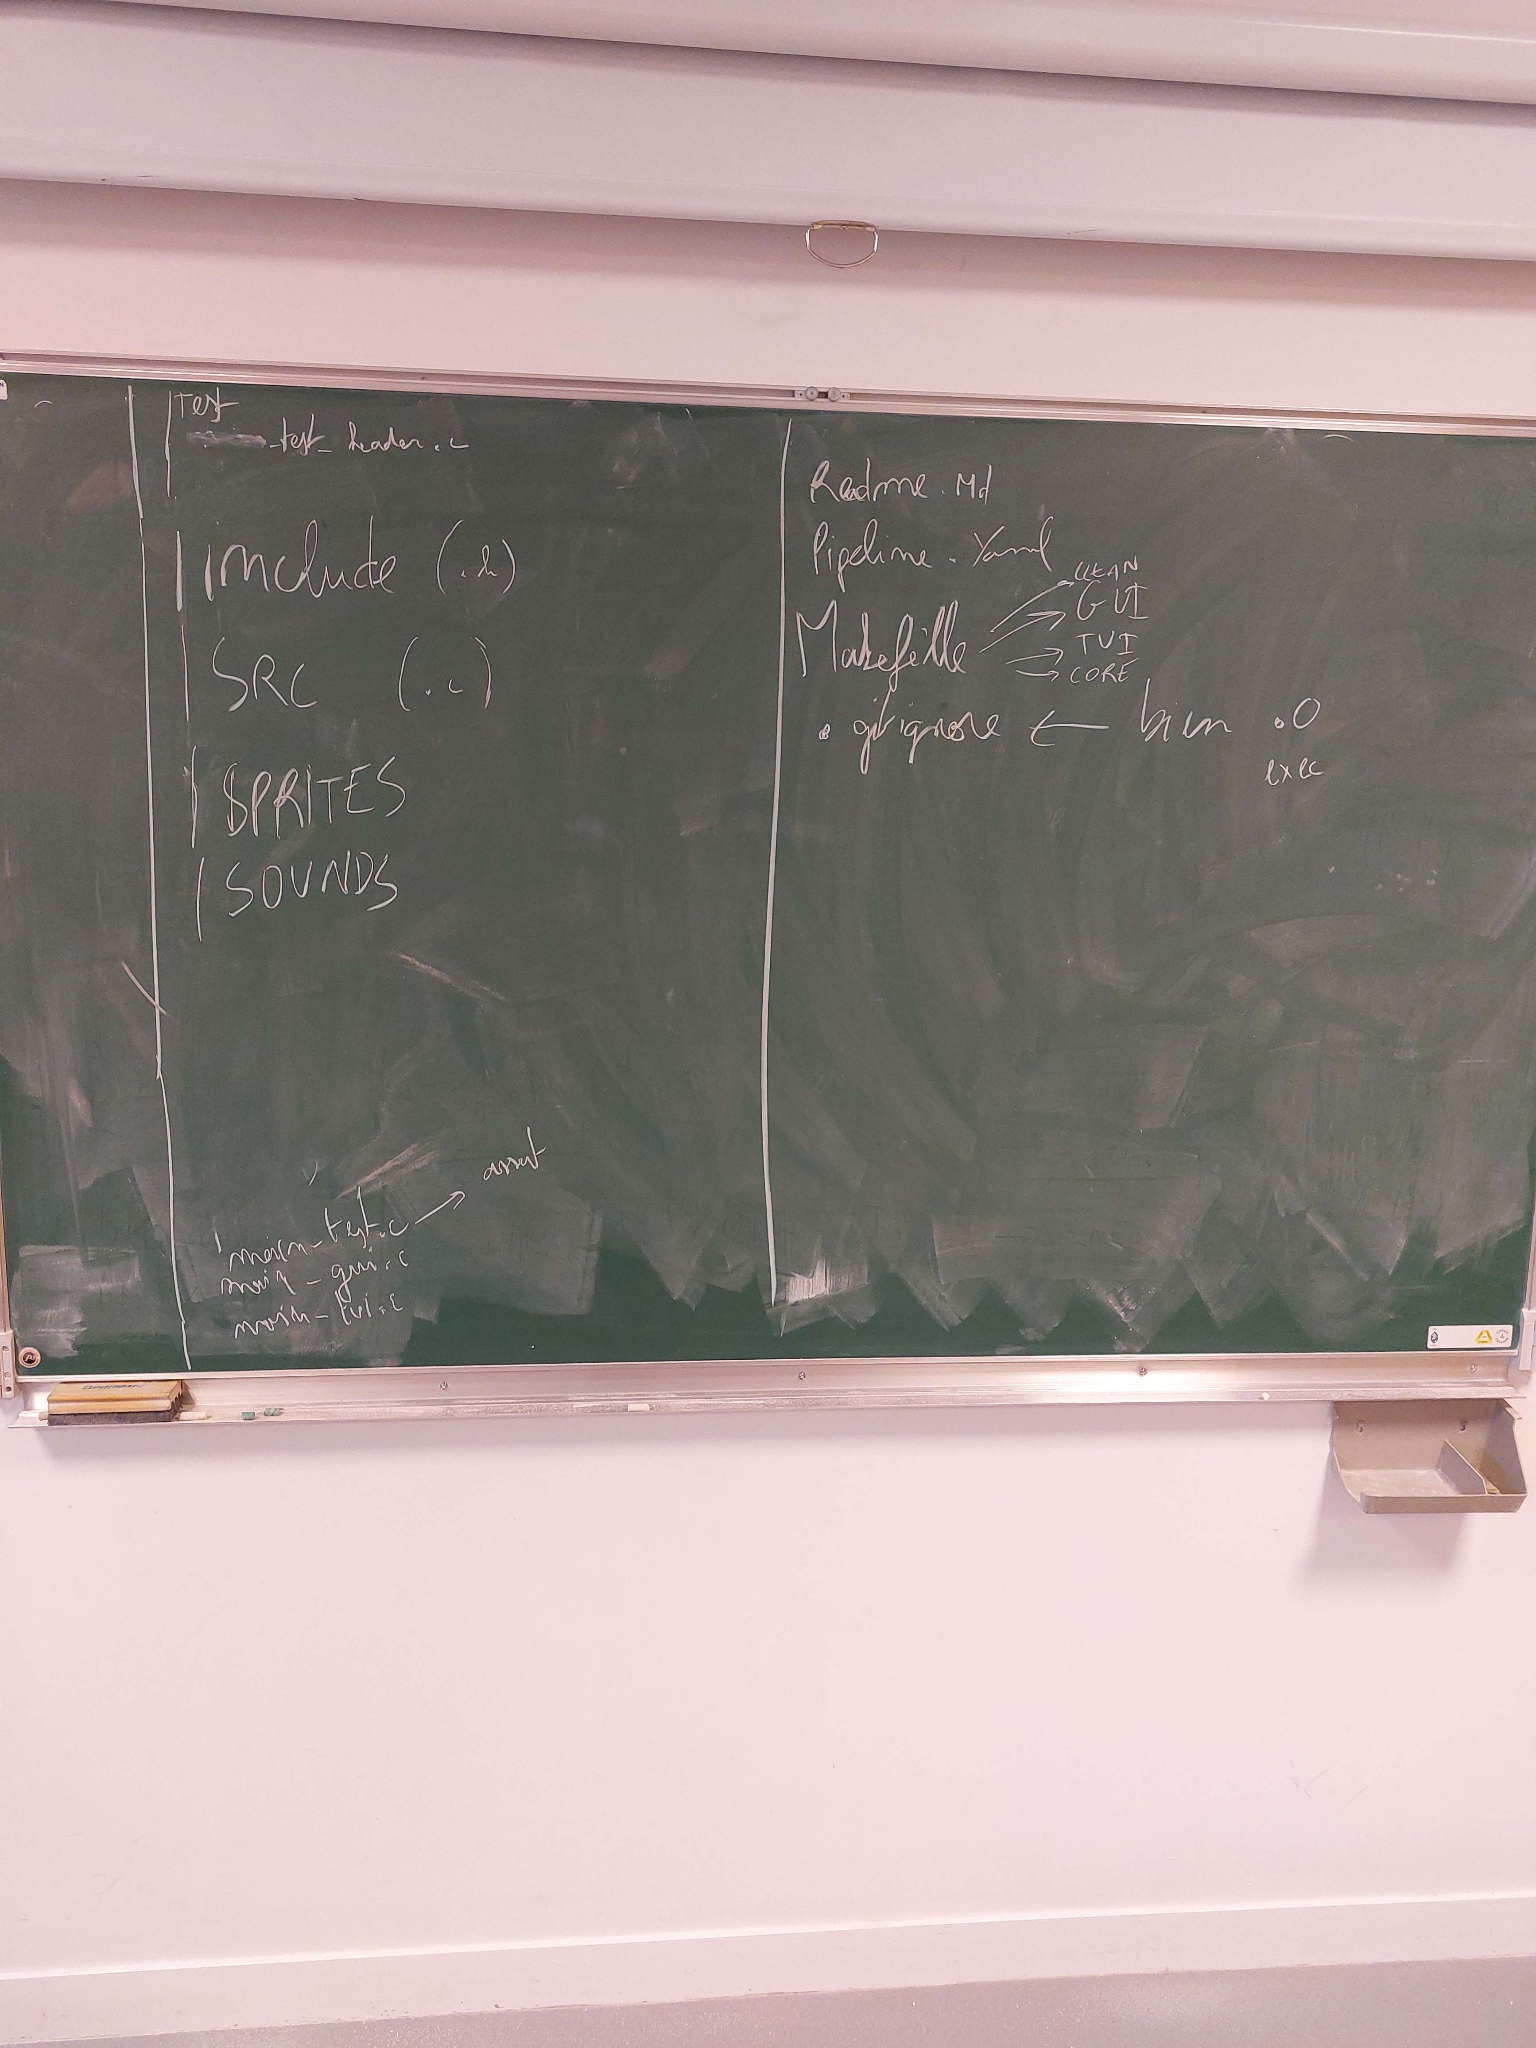 Test
_test_header.c
include (.h)
SRC (.c)
SPRITES
SOUNDS
main_test.c → assert
main_gui.c
main_tui.c
Readme.Md
Pipeline.Yaml
Makefille
CLEAN
GUI
TUI
CORE
.gitignore ← bien .O
exec